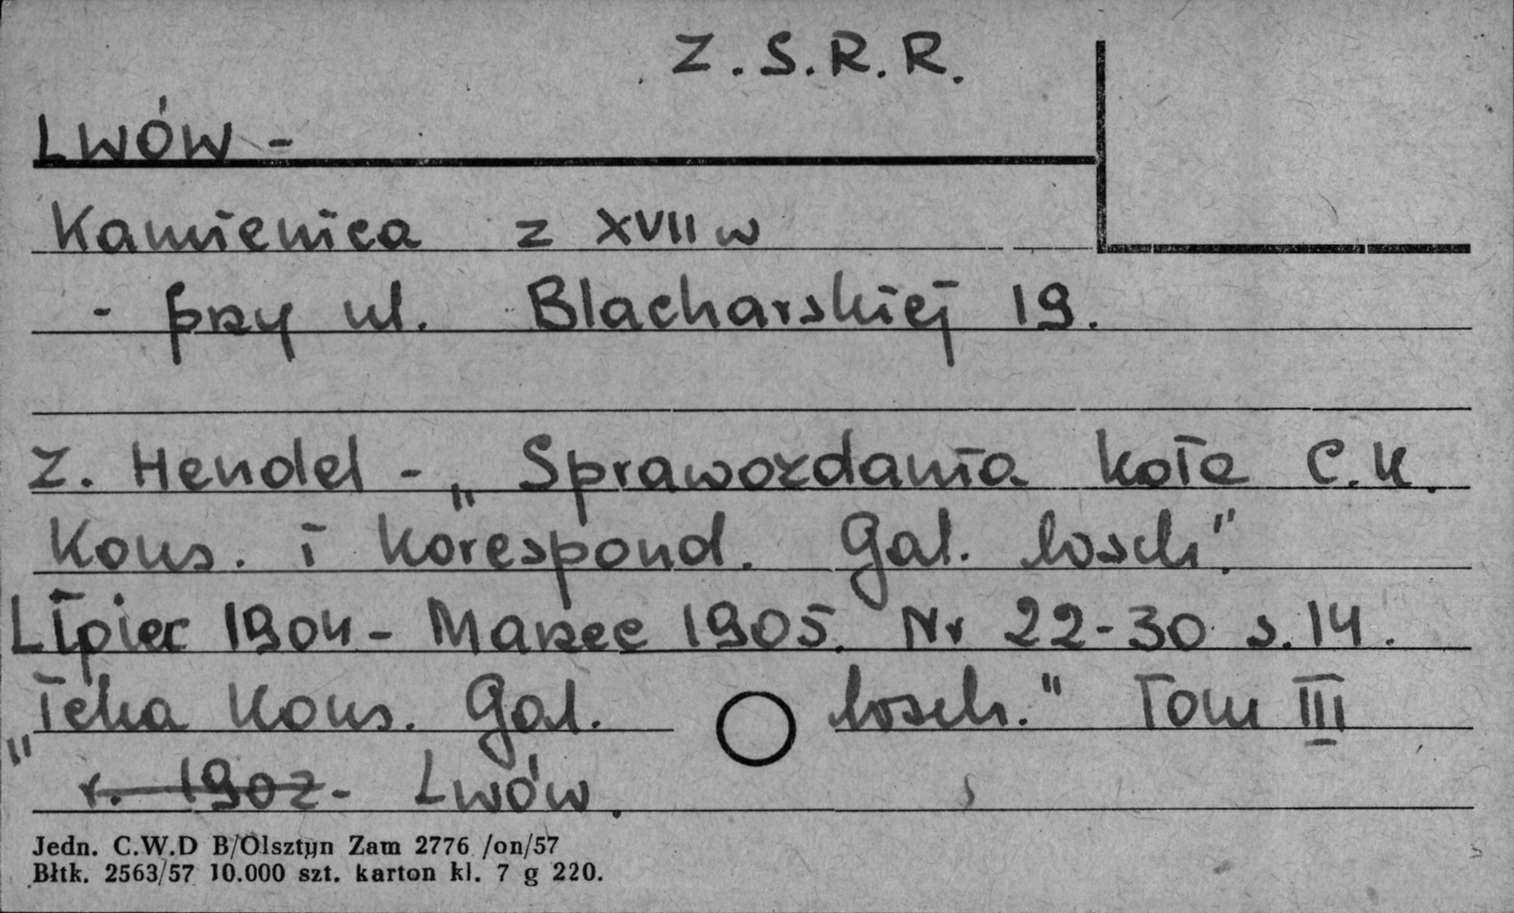 Z.S.R.R.
LWÓW -
Kamienica z XVII w
- przy ul. Blacharskiej 19.
Z. Hendel - „Sprawozdania koła C.K.
Kons. i korespond. Gal. wsch".
Lipiec 1904 - Marzec 1905. Nr 22-30 s. 14.
„Teka Kons. Gal. wsch." Tom III
r. 1907 - Lwów.
Jedn. C.W.D B/Olsztyn Zam 2776 /on/57
Błtk. 2563/57 10.000 szt. karton kl. 7 g 220.